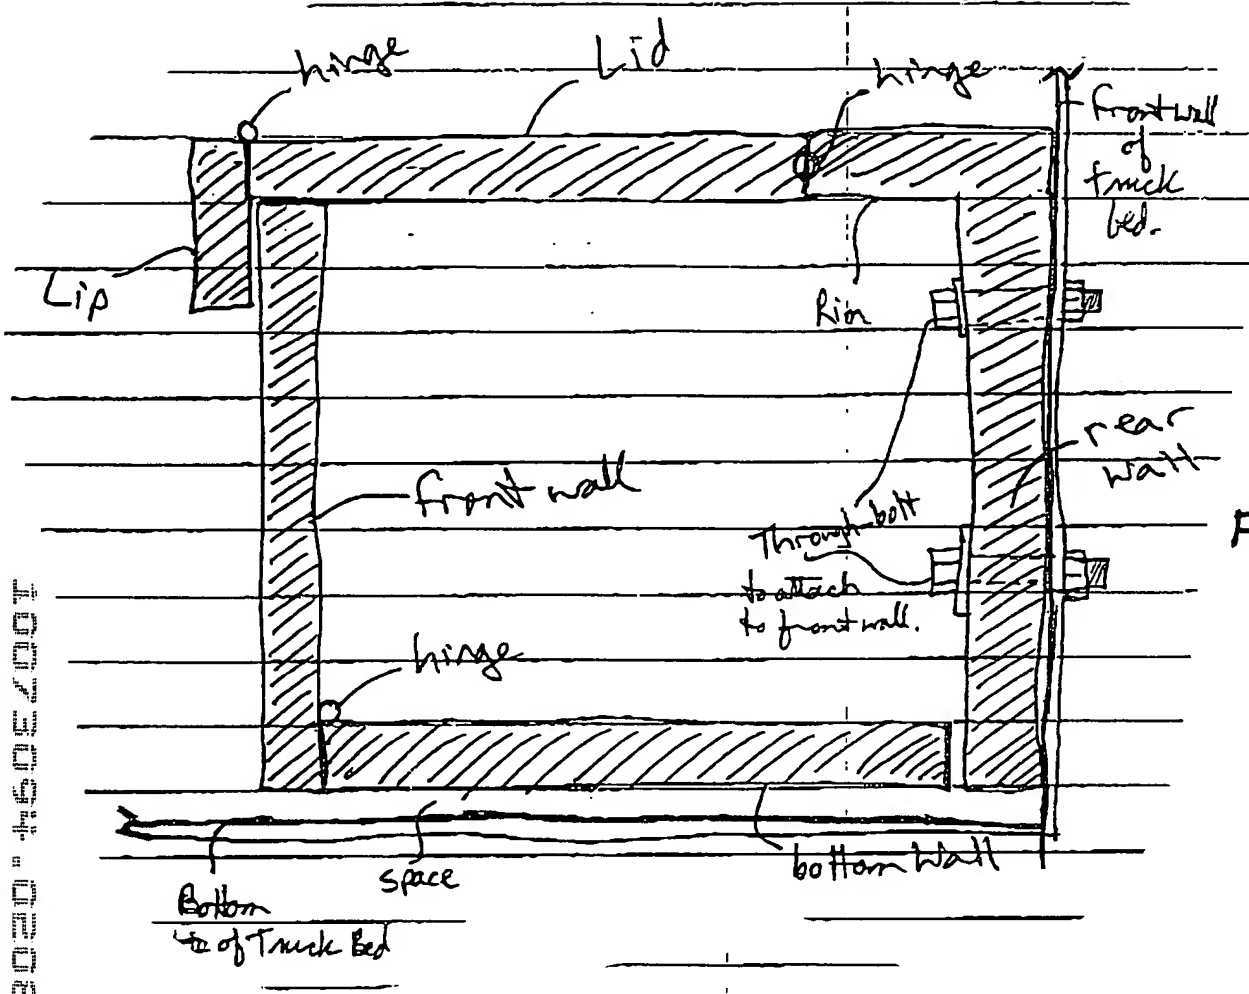 hinge
Lid
hinge
front wall
of
truck
bed.
Lip
Rim
rear
wall
front wall
Through-bolt
to attach
to front wall.
hinge
F
bottom Wall
space
Bottom
of Truck Bed